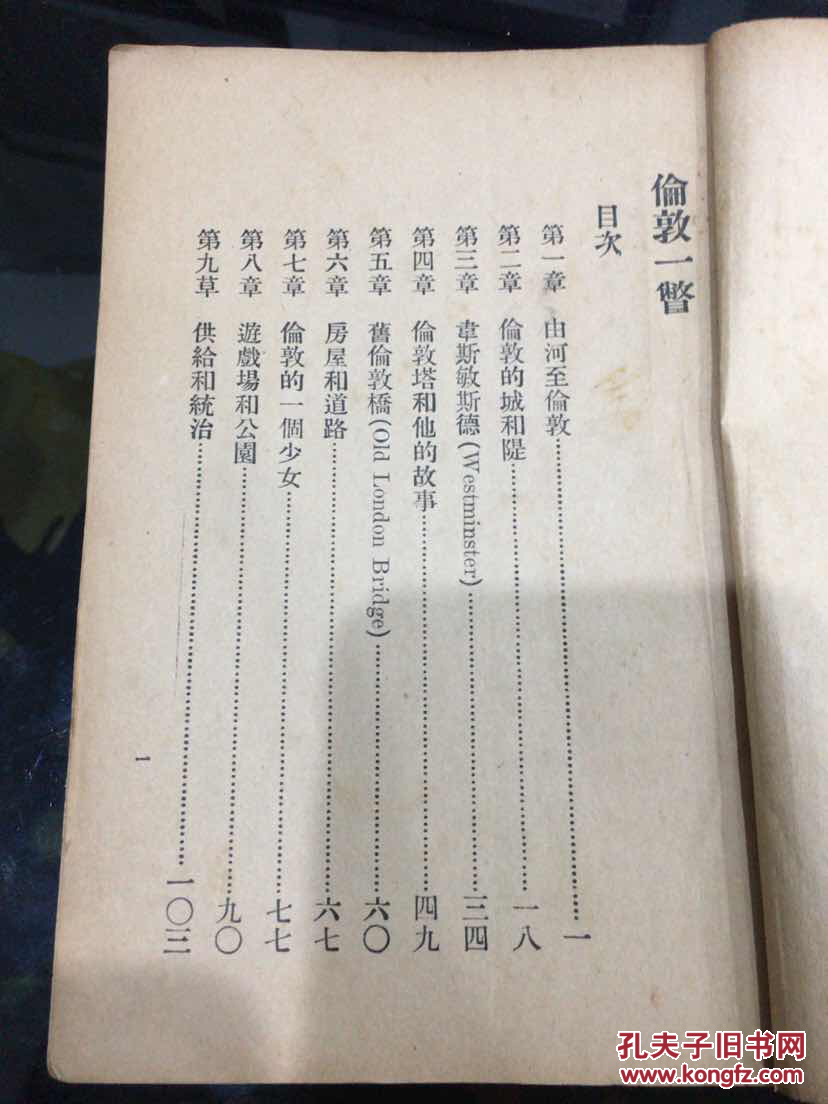 倫敦一瞥
目次
第一章 由河至倫敦……一
第二章 倫敦的城和隄……一八
第三章 韋斯敏斯德(Westminster)……三四
第四章 倫敦塔和他的故事……四九
第五章 舊倫敦橋(Old London Bridge)……六〇
第六章 房屋和道路……六七
第七章 倫敦的一個少女……七七
第八章 遊戲場和公園……九〇
第九草 供給和統治……一〇三
1
孔夫子旧书网
www.kongfz.com